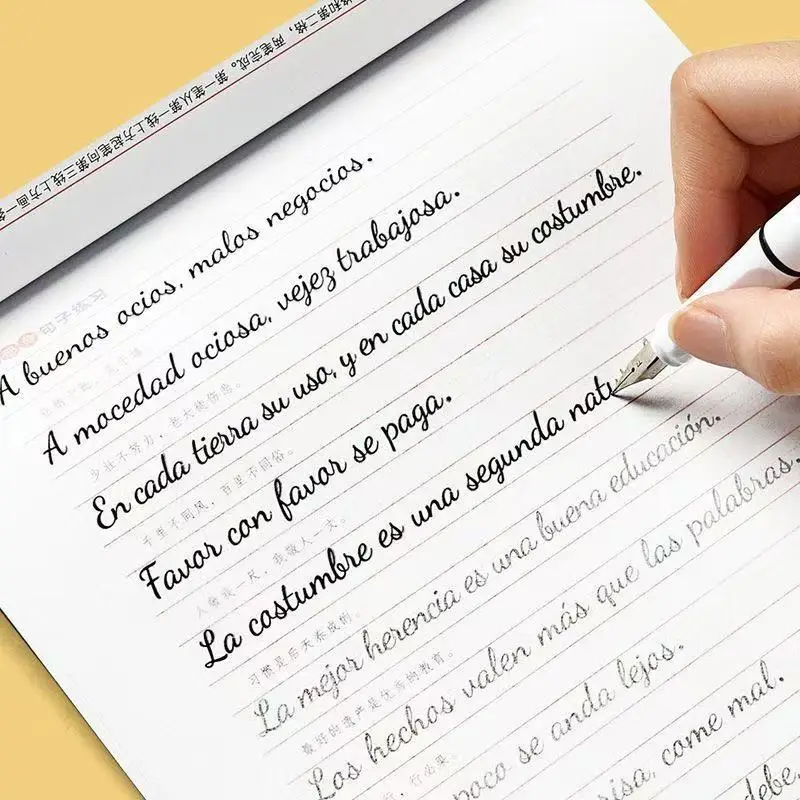 格和第二格，两笔完成。第一笔从第一线上方起笔向第三线上方画一条
句子练习
A buenos ocios, malos negocios.
A mocedad ociosa, vejez trabajosa.
少壮不努力，老大徒伤悲。
En cada tierra su uso, y en cada casa su costumbre.
千里不同风，百里不同俗。
Favor con favor se paga.
人敬我一尺，我敬人一丈。
La costumbre es una segunda natu
习惯是后天养成的。
La mejor herencia es una buena educación.
最好的遗产是优秀的教育。
Los hechos valen más que las palabras.
行，行必果。
poco se anda lejos.
isa, come mal.
debe,